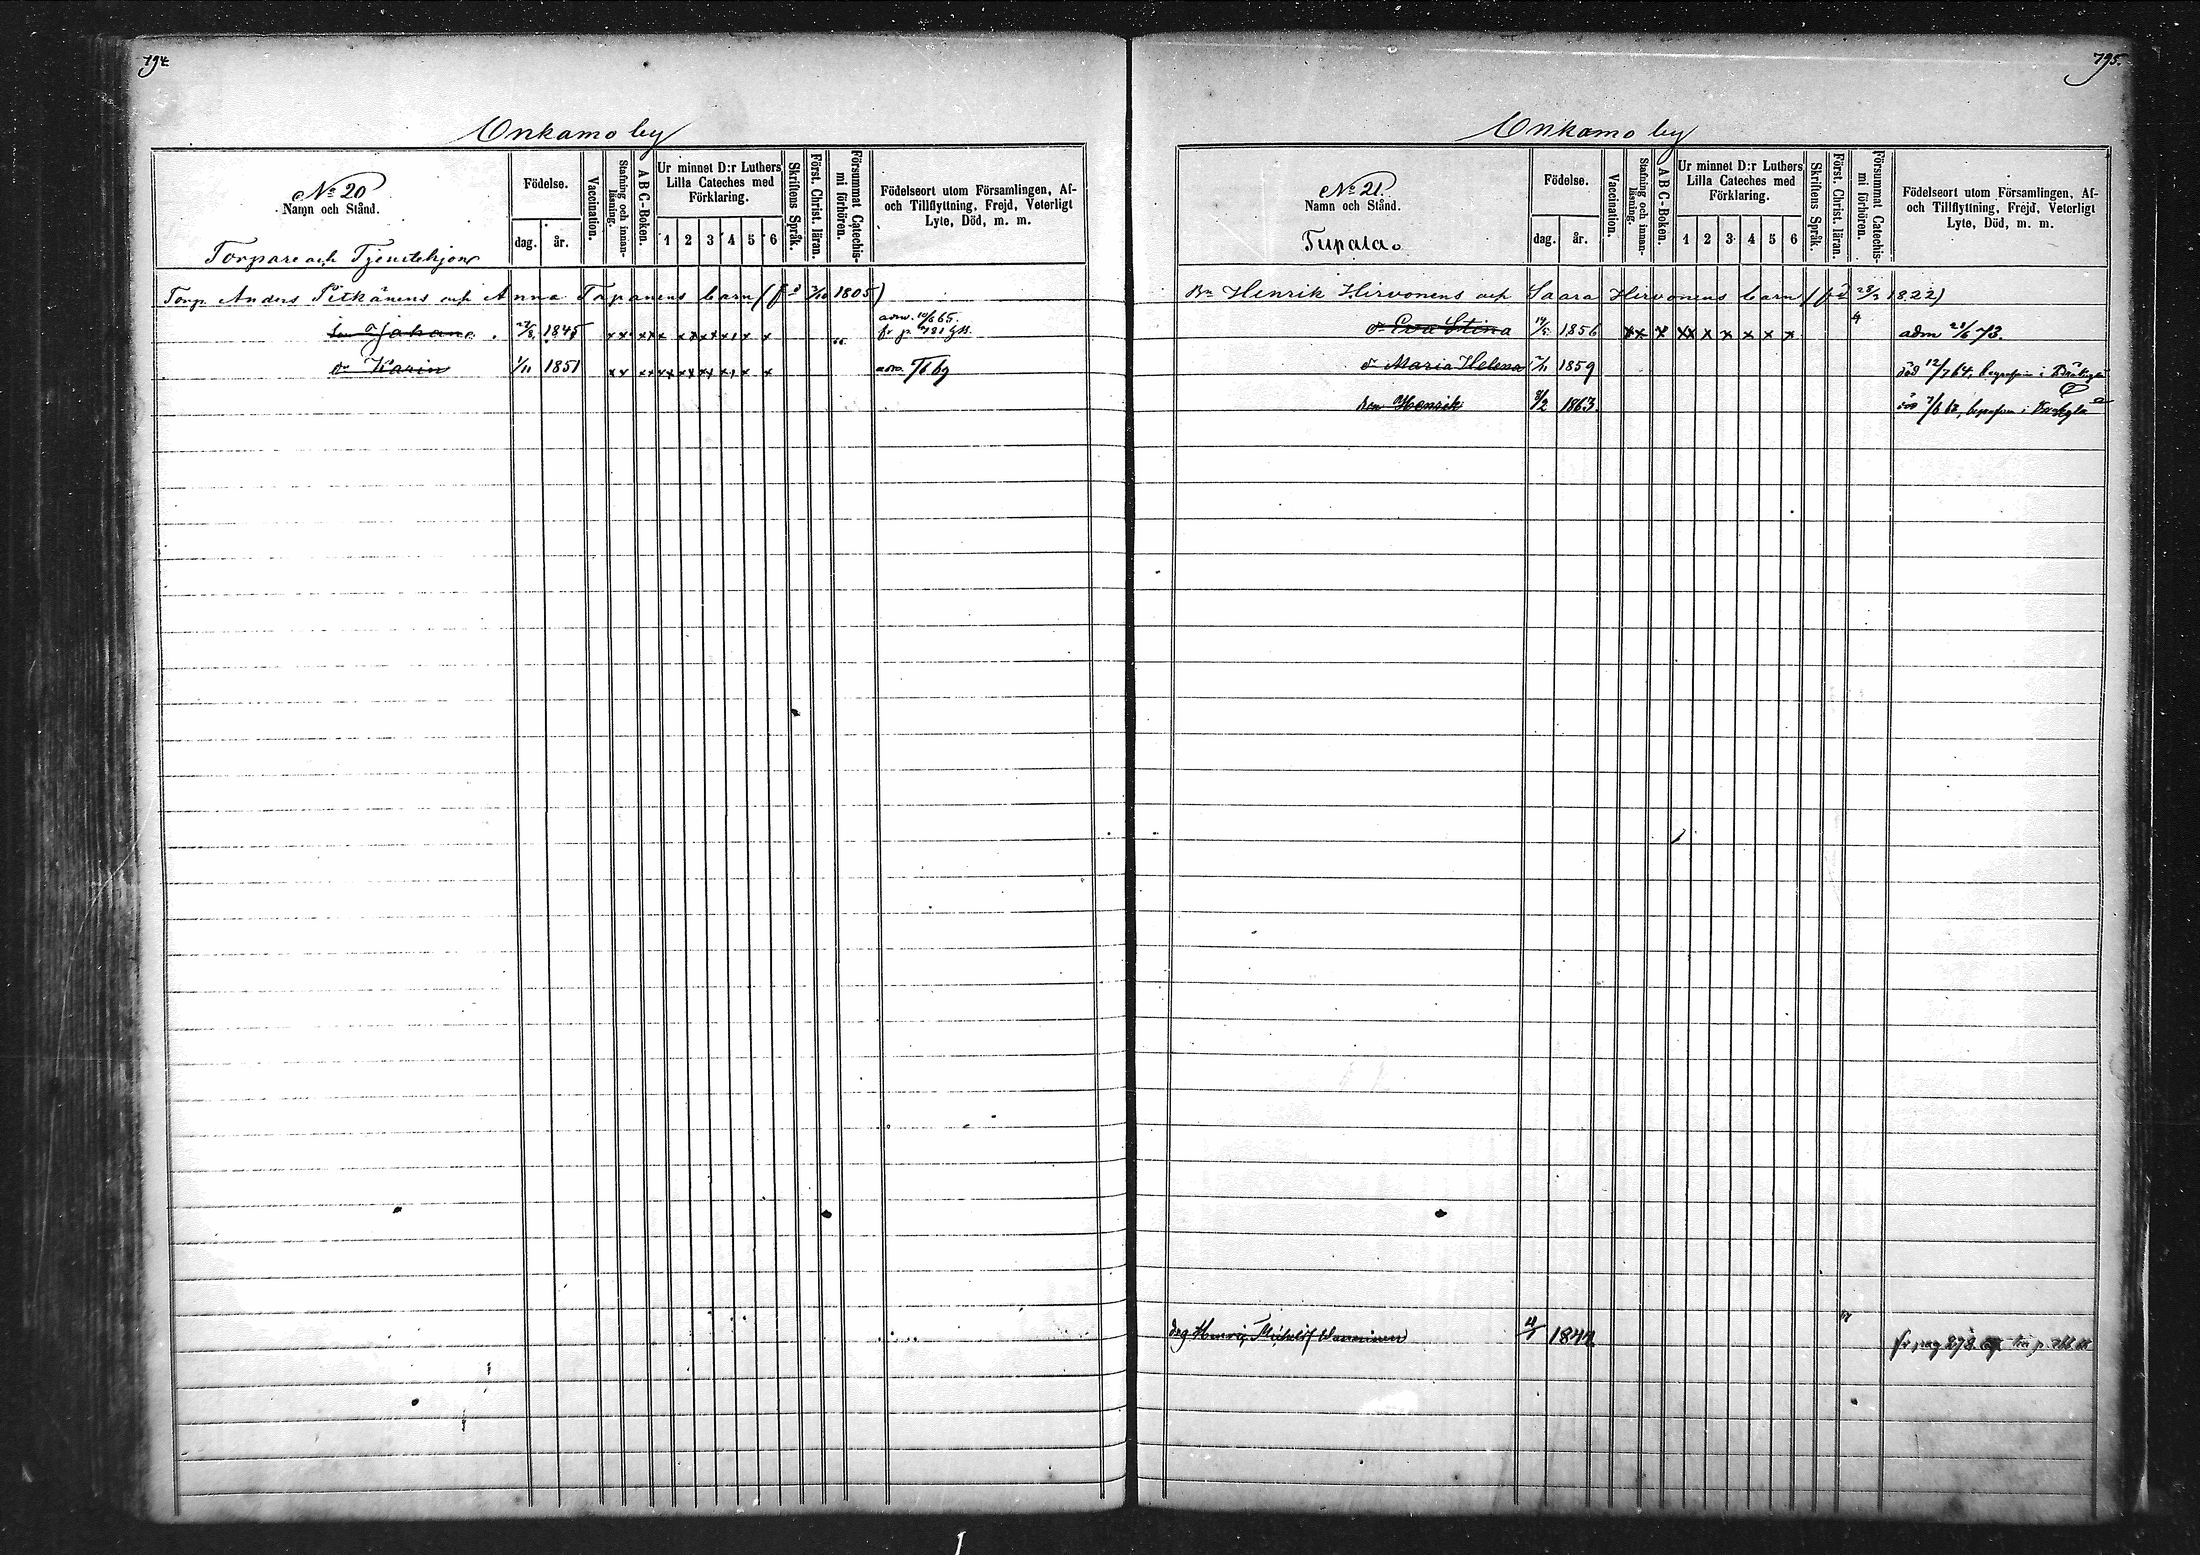 794.
Onkamo by
No 20
Namn och Stånd.
Torpare och Tjenstehjon
Födelse.
dag. år.
Vaccination.
Stafning och innan-
läsning.
A B C-Boken.
Ur minnet D:r Luthers
Lilla Cateches med
Förklaring.
1 2 3 4 5 6
Skriftens Språk.
Först. Christ. läran.
Försummat Catechis-
mi förhören.
Födelseort utom Församlingen, Af-
och Tillflyttning, Frejd, Veterligt
Lyte, Död, m. m.
Torp. Anders Pitkänens och Anna Tapanens barn (f. 1805)
Johan 1845 x x x x x x x x x x
d:r Karin 1/11 1851 x x x x x x x x x x
795.
Onkamo by
No 21.
Namn och Stånd.
Tupala.
Födelse.
dag. år.
Vaccination.
Stafning och innan-
läsning.
A B C-Boken.
Ur minnet D:r Luthers
Lilla Cateches med
Förklaring.
1 2 3 4 5 6
Skriftens Språk.
Först. Christ. läran.
Försummat Catechis-
mi förhören.
Födelseort utom Församlingen, Af-
och Tillflyttning, Frejd, Veterligt
Lyte, Död, m. m.
Bn Henrik Hirvonens och Saara Hirvonens barn 1822)
d. Eva Stina 1856 x x x x x x x x x x adm 73.
d. Maria Helena 1859 död 12/7 64, begrafven i
son Henrik 8/2 1863 död begrafven i
1842 fr. pag 278